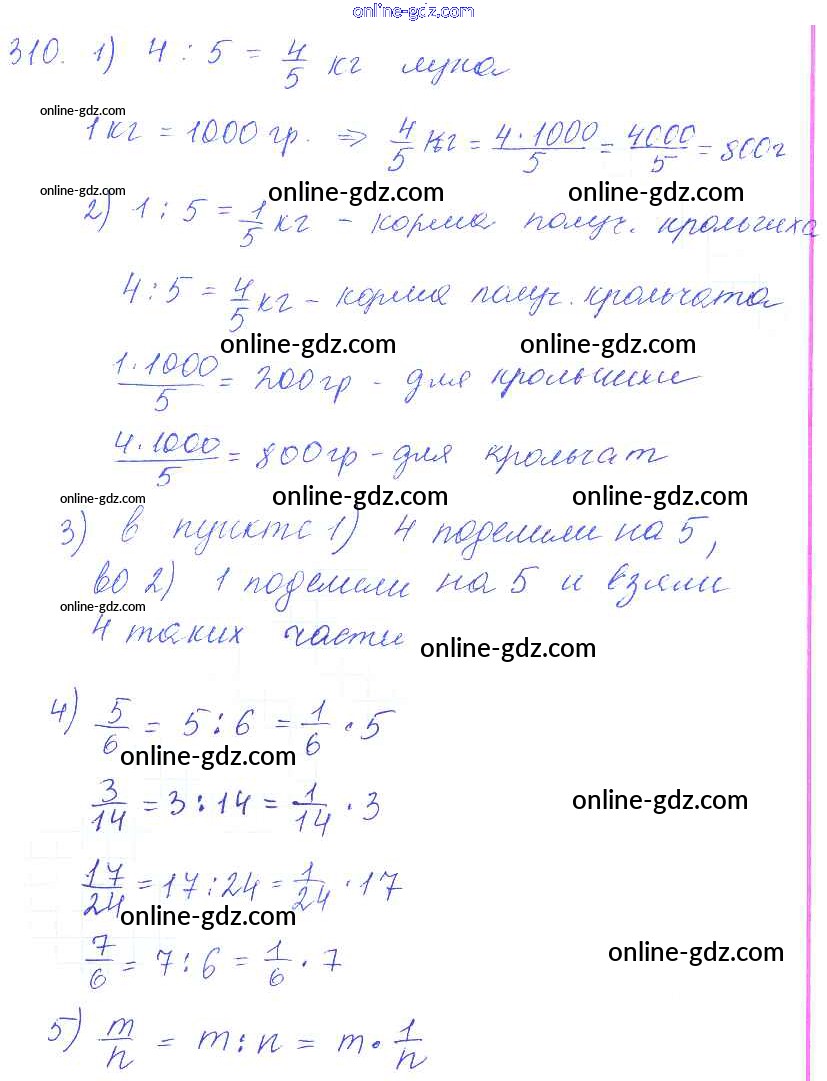 online-gdz.com
310. 1) 4 : 5 = 4/5 кг лука
online-gdz.com
1 кг = 1000 гр. ⇒ 4/5 кг = 4·1000/5 = 4000/5 = 800 г
online-gdz.com online-gdz.com online-gdz.com
2) 1 : 5 = 1/5 кг - корма получ. крольчиха
4 : 5 = 4/5 кг - корма получ. крольчата
online-gdz.com online-gdz.com
1·1000/5 = 200 гр - для крольчихи
4·1000/5 = 800 гр - для крольчат
online-gdz.com online-gdz.com online-gdz.com
3) в пункте 1) 4 поделили на 5,
во 2) 1 поделили на 5 и взяли
online-gdz.com
4 таких части
online-gdz.com
4) 5/6 = 5 : 6 = 1/6 · 5
online-gdz.com
3/14 = 3 : 14 = 1/14 · 3
online-gdz.com
17/24 = 17 : 24 = 1/24 · 17
online-gdz.com
7/6 = 7 : 6 = 1/6 · 7
online-gdz.com
5) m/n = m : n = m · 1/n